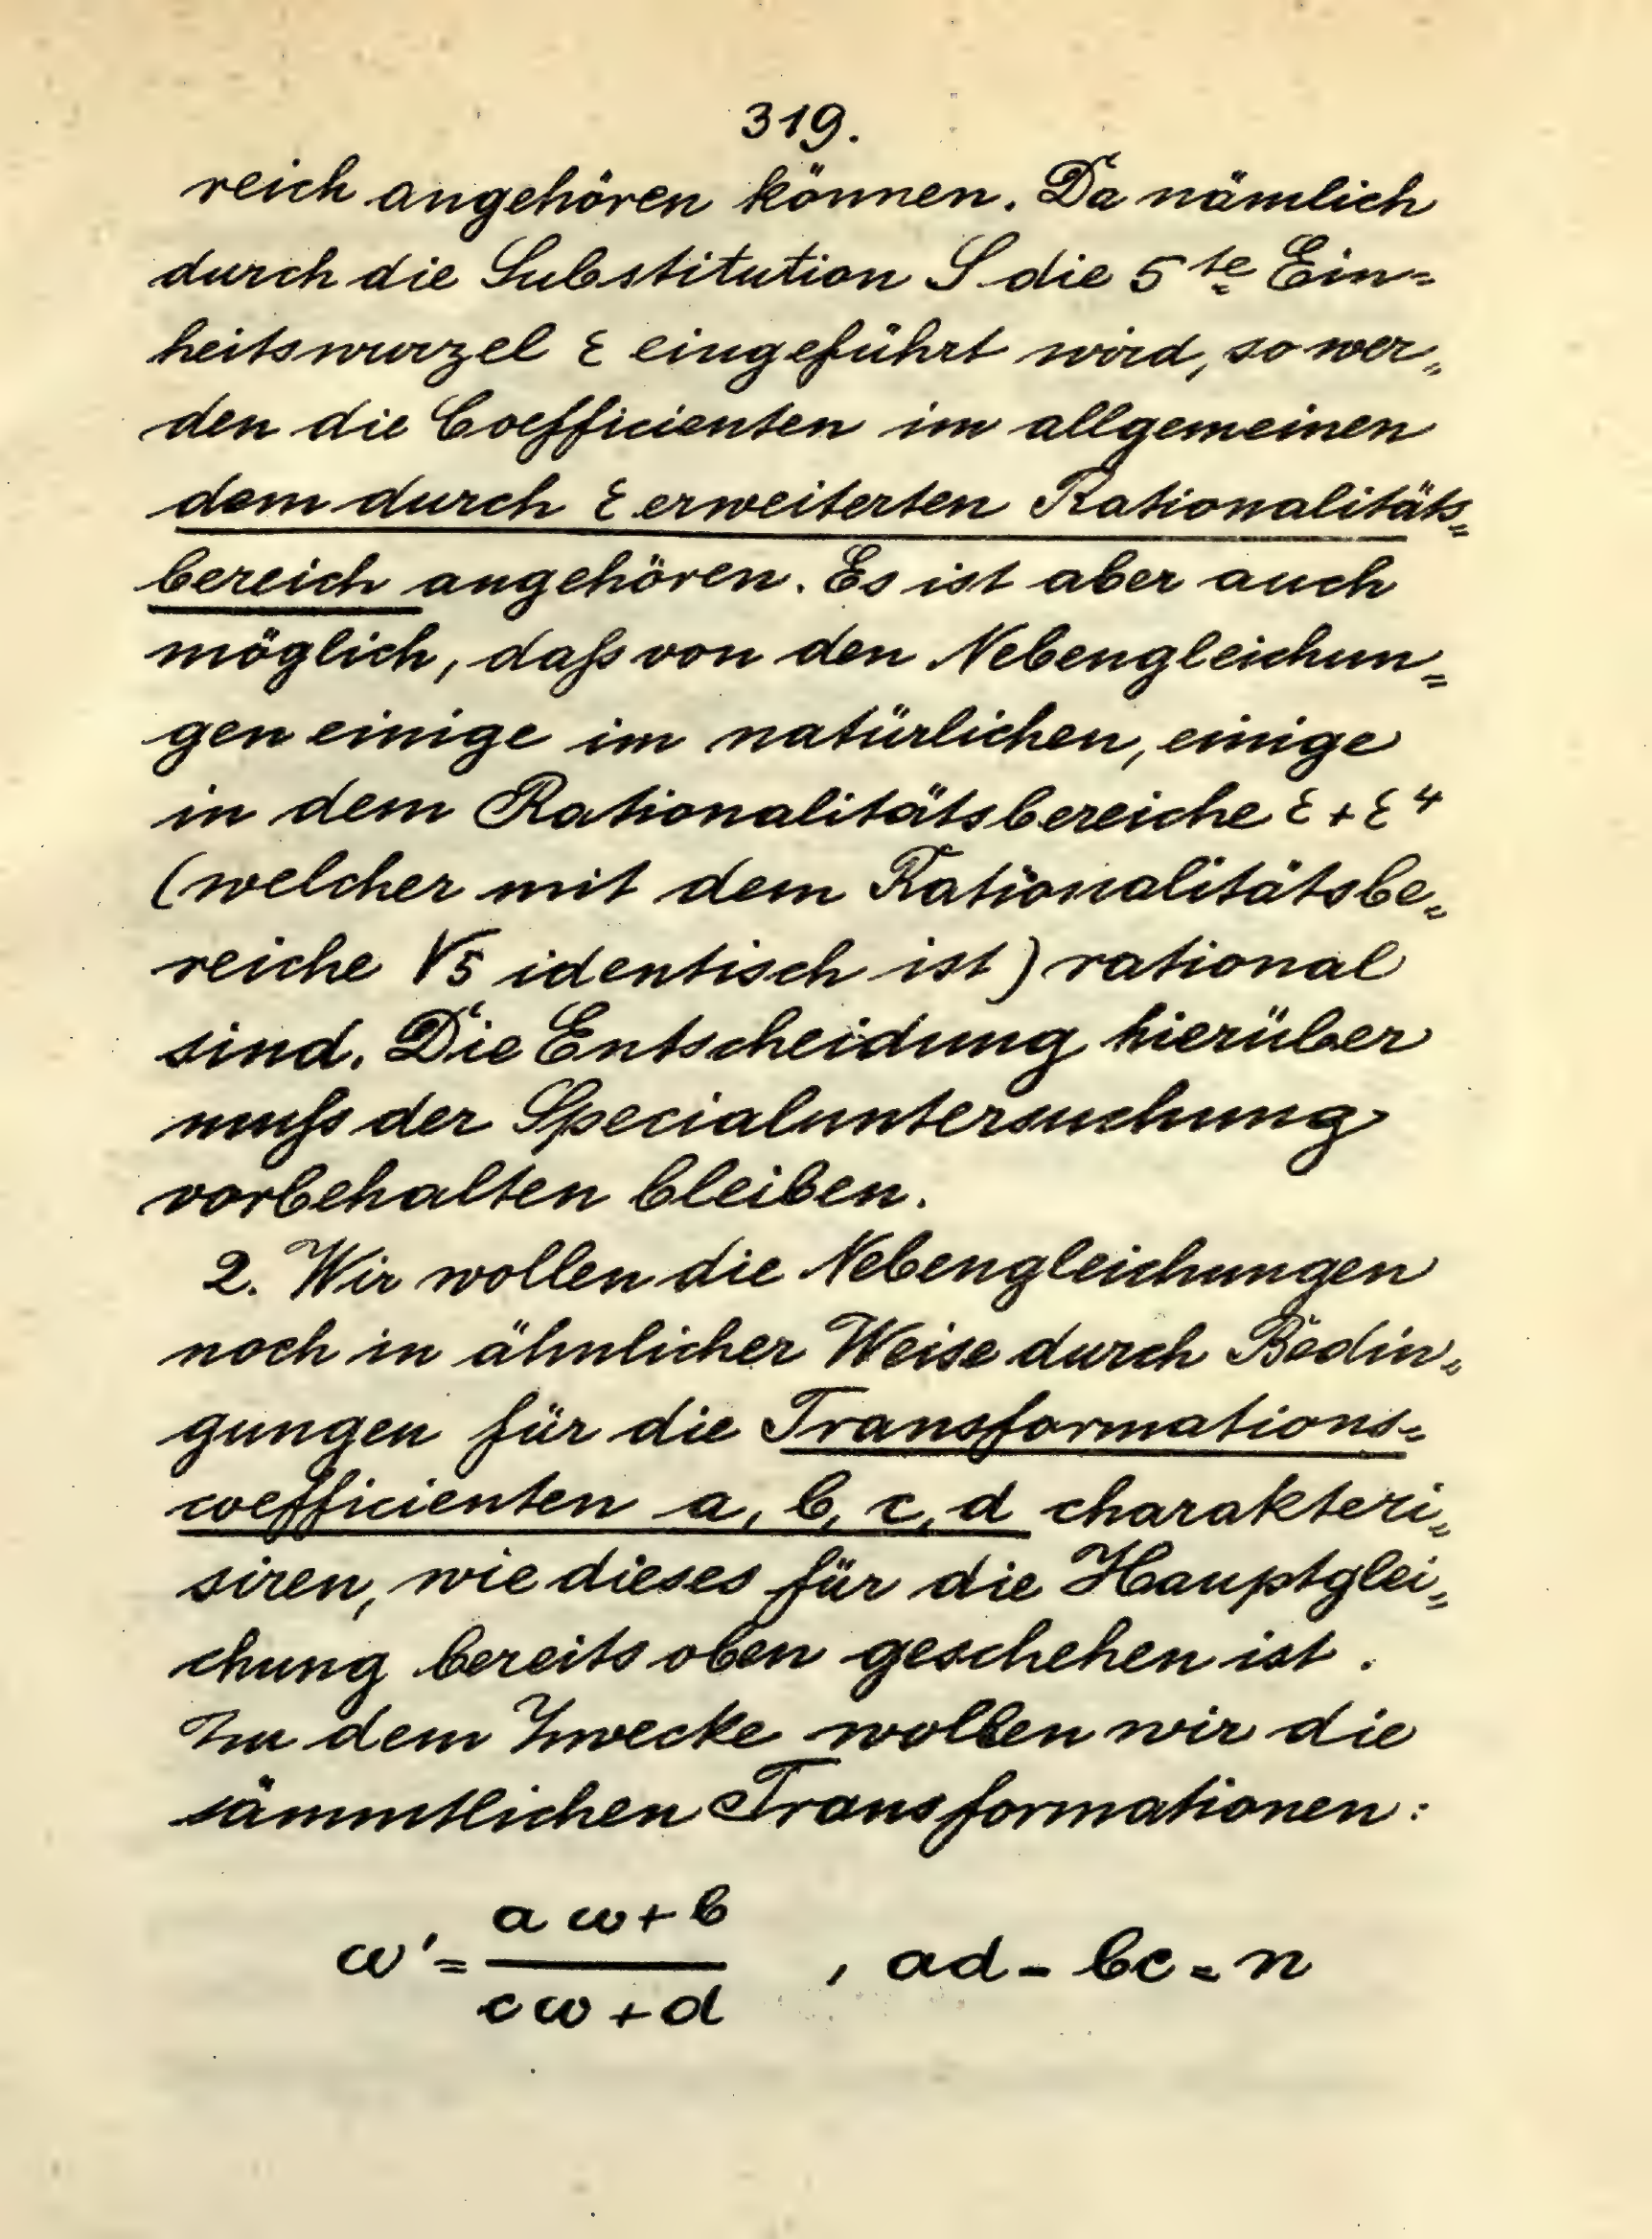 319.
reich angehören können. Da nämlich
durch die Substitution S die 5te Ein=
heitswurzel ε eingeführt wird, so wer=
den die Coefficienten im allgemeinen
dem durch ε erweiterten Rationalitäts=
bereich angehören. Es ist aber auch
möglich, daß von den Nebengleichun=
gen einige im natürlichen, einige
in dem Rationalitätsbereiche ε + ε⁴
(welcher mit dem Rationalitätsbe=
reiche √5 identisch ist) rational
sind. Die Entscheidung hierüber
muß der Specialuntersuchung
vorbehalten bleiben.
2. Wir wollen die Nebengleichungen
noch in ähnlicher Weise durch Bedin=
gungen für die Transformations=
coefficienten a, b, c, d charakteri=
siren, wie dieses für die Hauptglei=
chung bereits oben geschehen ist.
Zu dem Zwecke wollen wir die
sämmtlichen Transformationen:
ω' = (aω + b)/(cω + d) , ad - bc = n